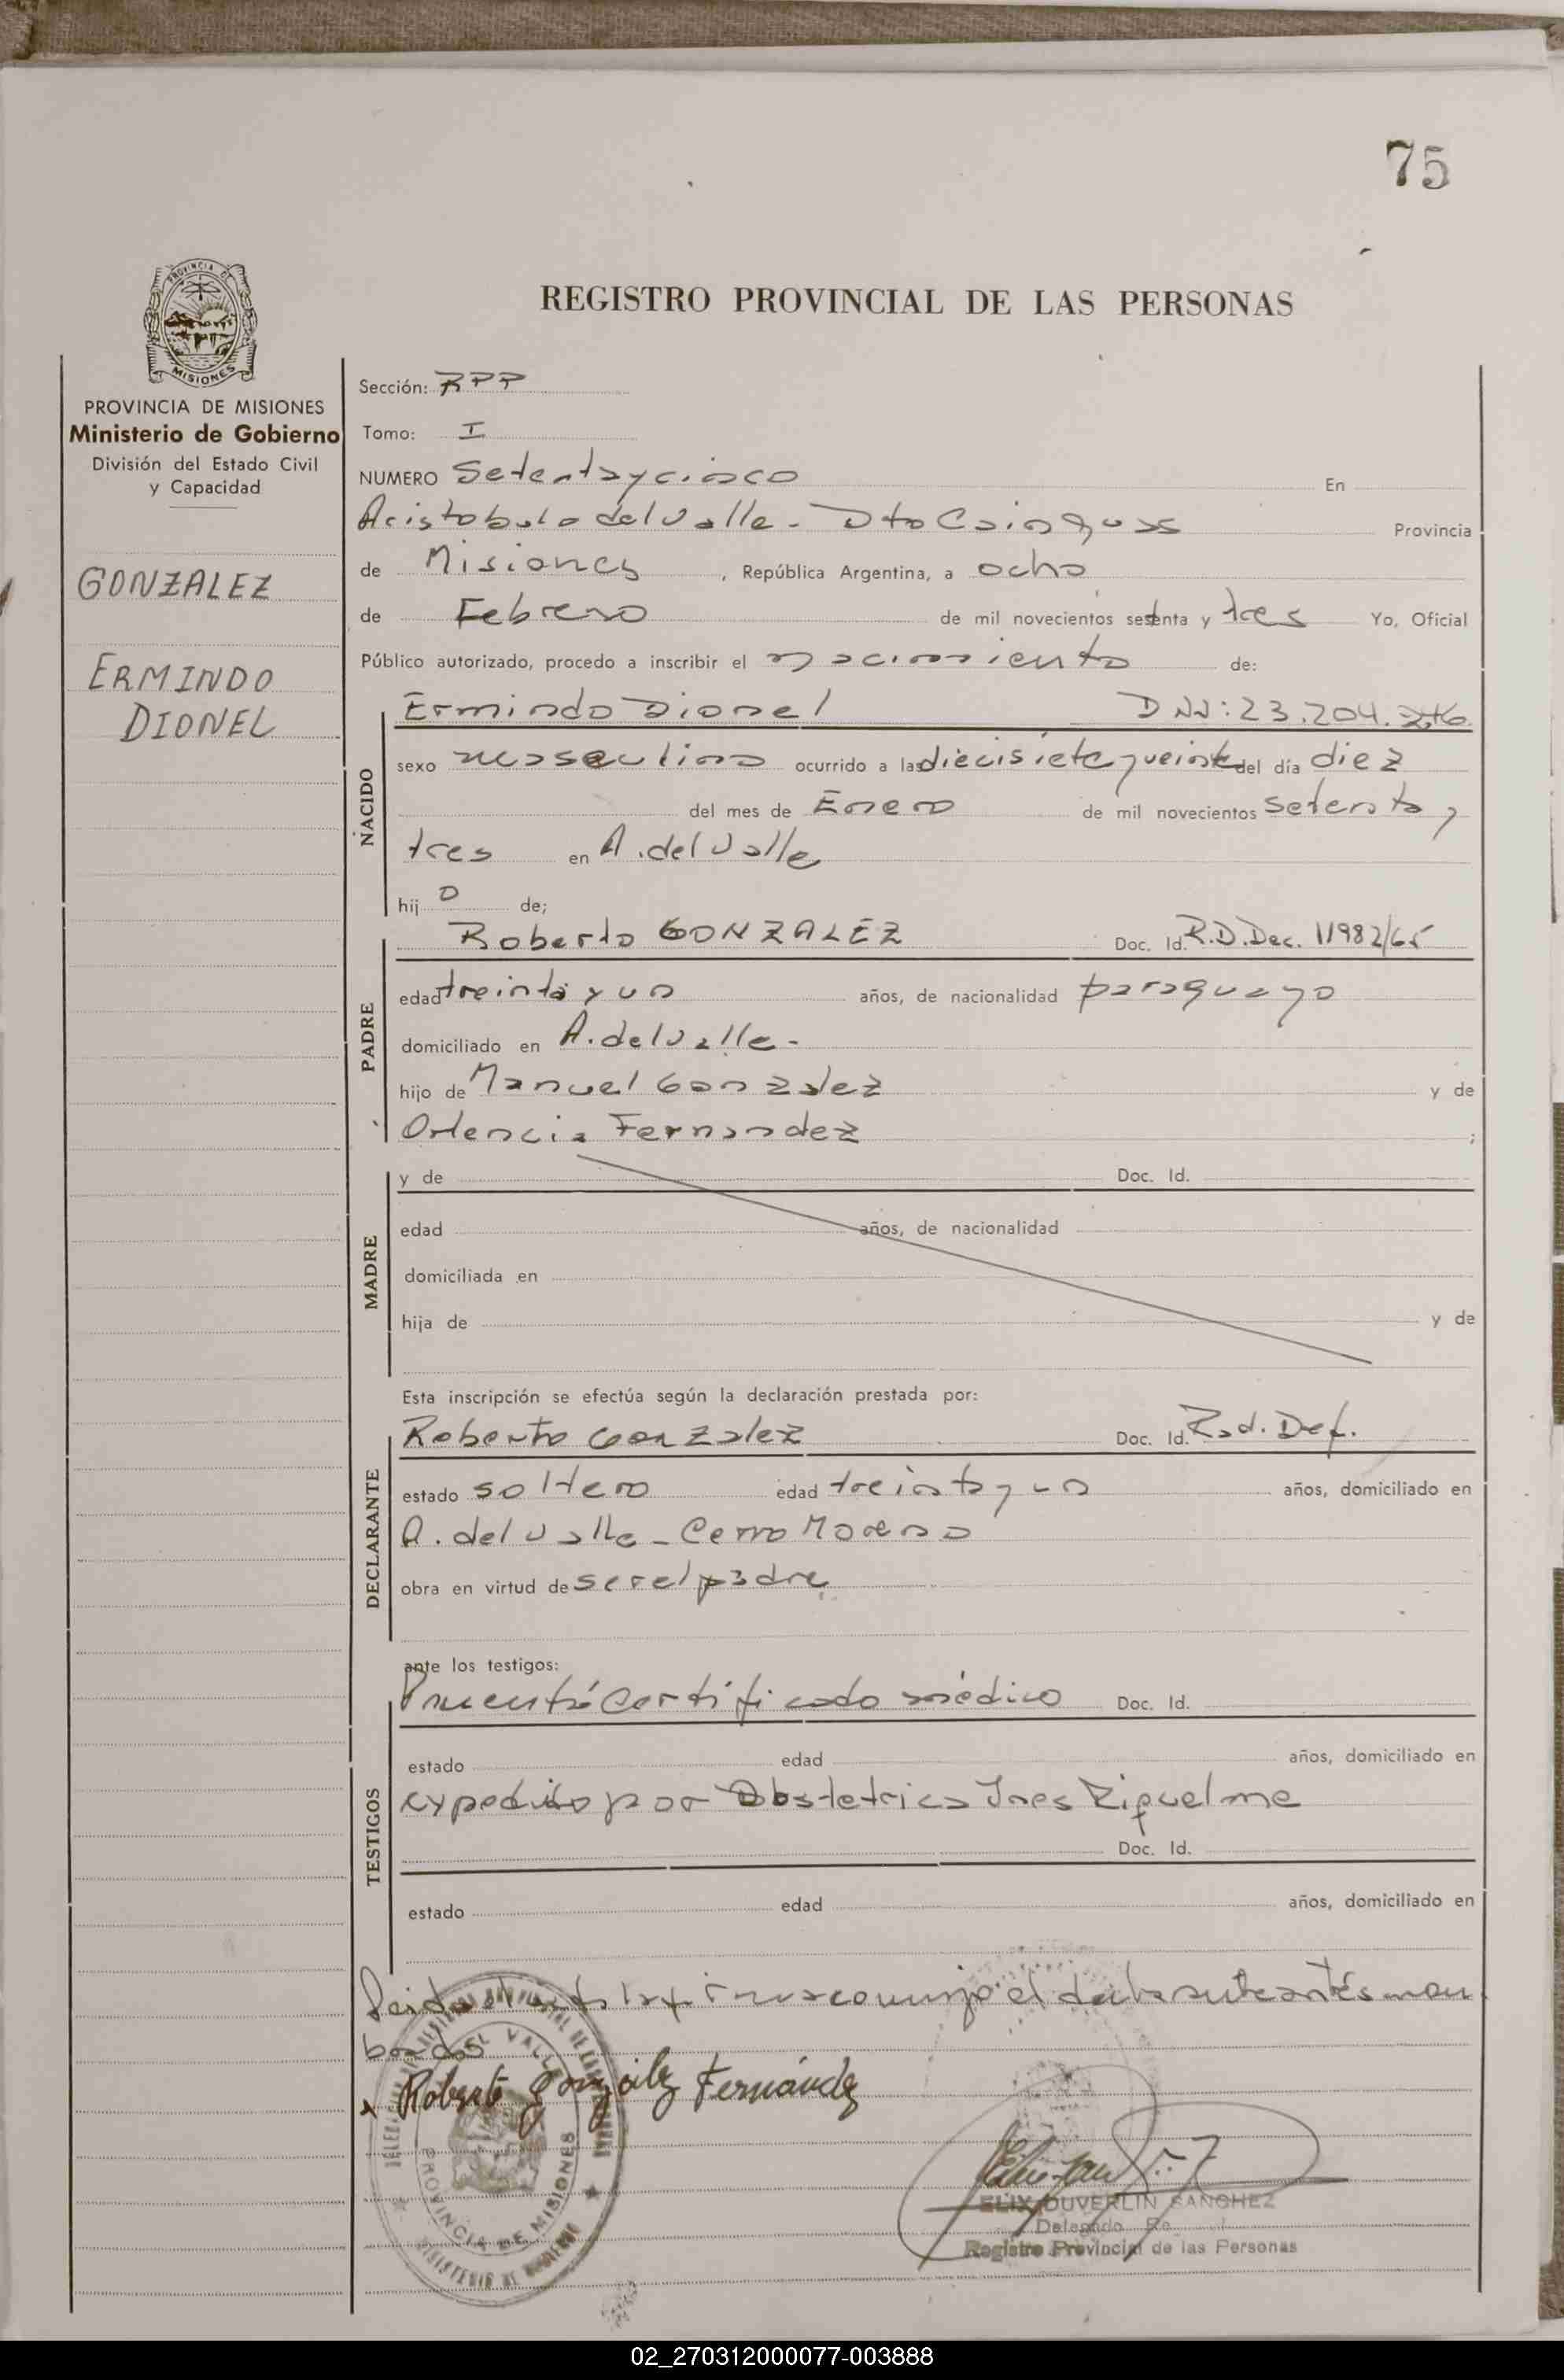 75
REGISTRO PROVINCIAL DE LAS PERSONAS
PROVINCIA DE MISIONES
Ministerio de Gobierno
División del Estado Civil
y Capacidad
GONZALEZ
ERMINDO
DIONEL
Sección: RPP
Tomo: I
NUMERO Setentaycinco En
Aristobulo del Valle - Dto Cainguas Provincia
de Misiones, República Argentina, a ocho
de Febrero de mil novecientos setenta y tres Yo, Oficial
Público autorizado, procedo a inscribir el nacimiento de:
NACIDO
Ermindo Dionel DNI: 23.204.
sexo masculino ocurrido a las diecisiete y veinte del día diez
del mes de Enero de mil novecientos setenta y
tres en A. del Valle
hij o de;
PADRE
Roberto GONZALEZ Doc. Id. R.D.Dec. 11982/65
edad treinta y un años, de nacionalidad paraguayo
domiciliado en A. del Valle -
hijo de Manuel Gonzalez y de
Ortencia Fernandez ;
MADRE
y de Doc. Id.
edad años, de nacionalidad
domiciliada en
hija de y de
Esta inscripción se efectúa según la declaración prestada por:
DECLARANTE
Roberto Gonzalez Doc. Id. Rad. Def.
estado soltero edad treinta y un años, domiciliado en
A. del Valle - Cerro Moreno
obra en virtud de ser el padre
ante los testigos:
TESTIGOS
certificado médico Doc. Id.
estado edad años, domiciliado en
expedido por Obstetrica Ines Riquelme
Doc. Id.
estado edad años, domiciliado en
Leida el acta la firma conmigo el
Roberto González Fernández
PROVINCIA DE MISIONES
ELIX DUVERLIN SANCHEZ
Delegado
Registro Provincial de las Personas
02_270312000077-003888